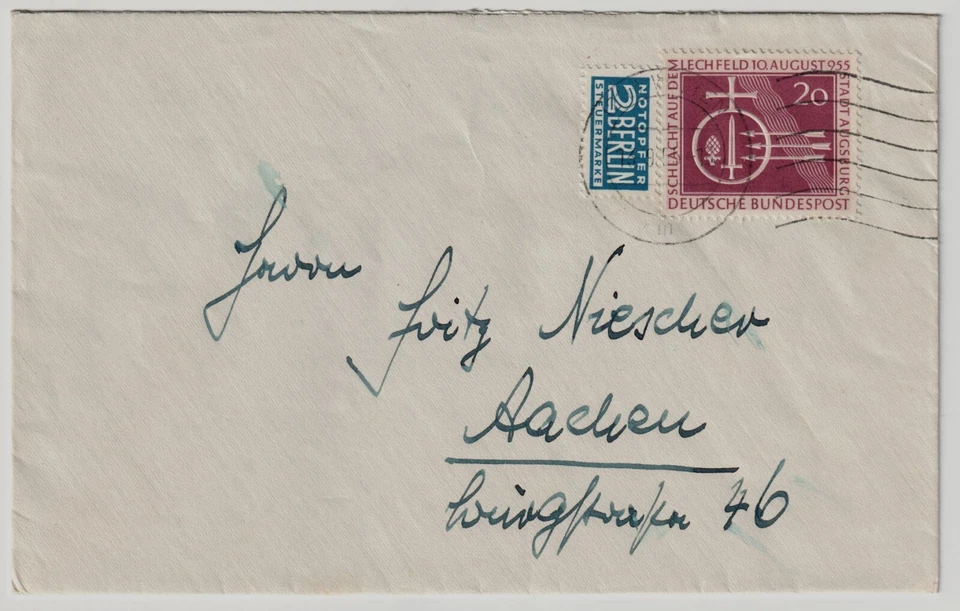 NOTOPFER
2 BERLIN
STEUERMARKE
SCHLACHT AUF DEM LECHFELD 10. AUGUST 955 STADT AUGSBURG
20
DEUTSCHE BUNDESPOST
Herrn
Fritz Niescher
Aachen
46